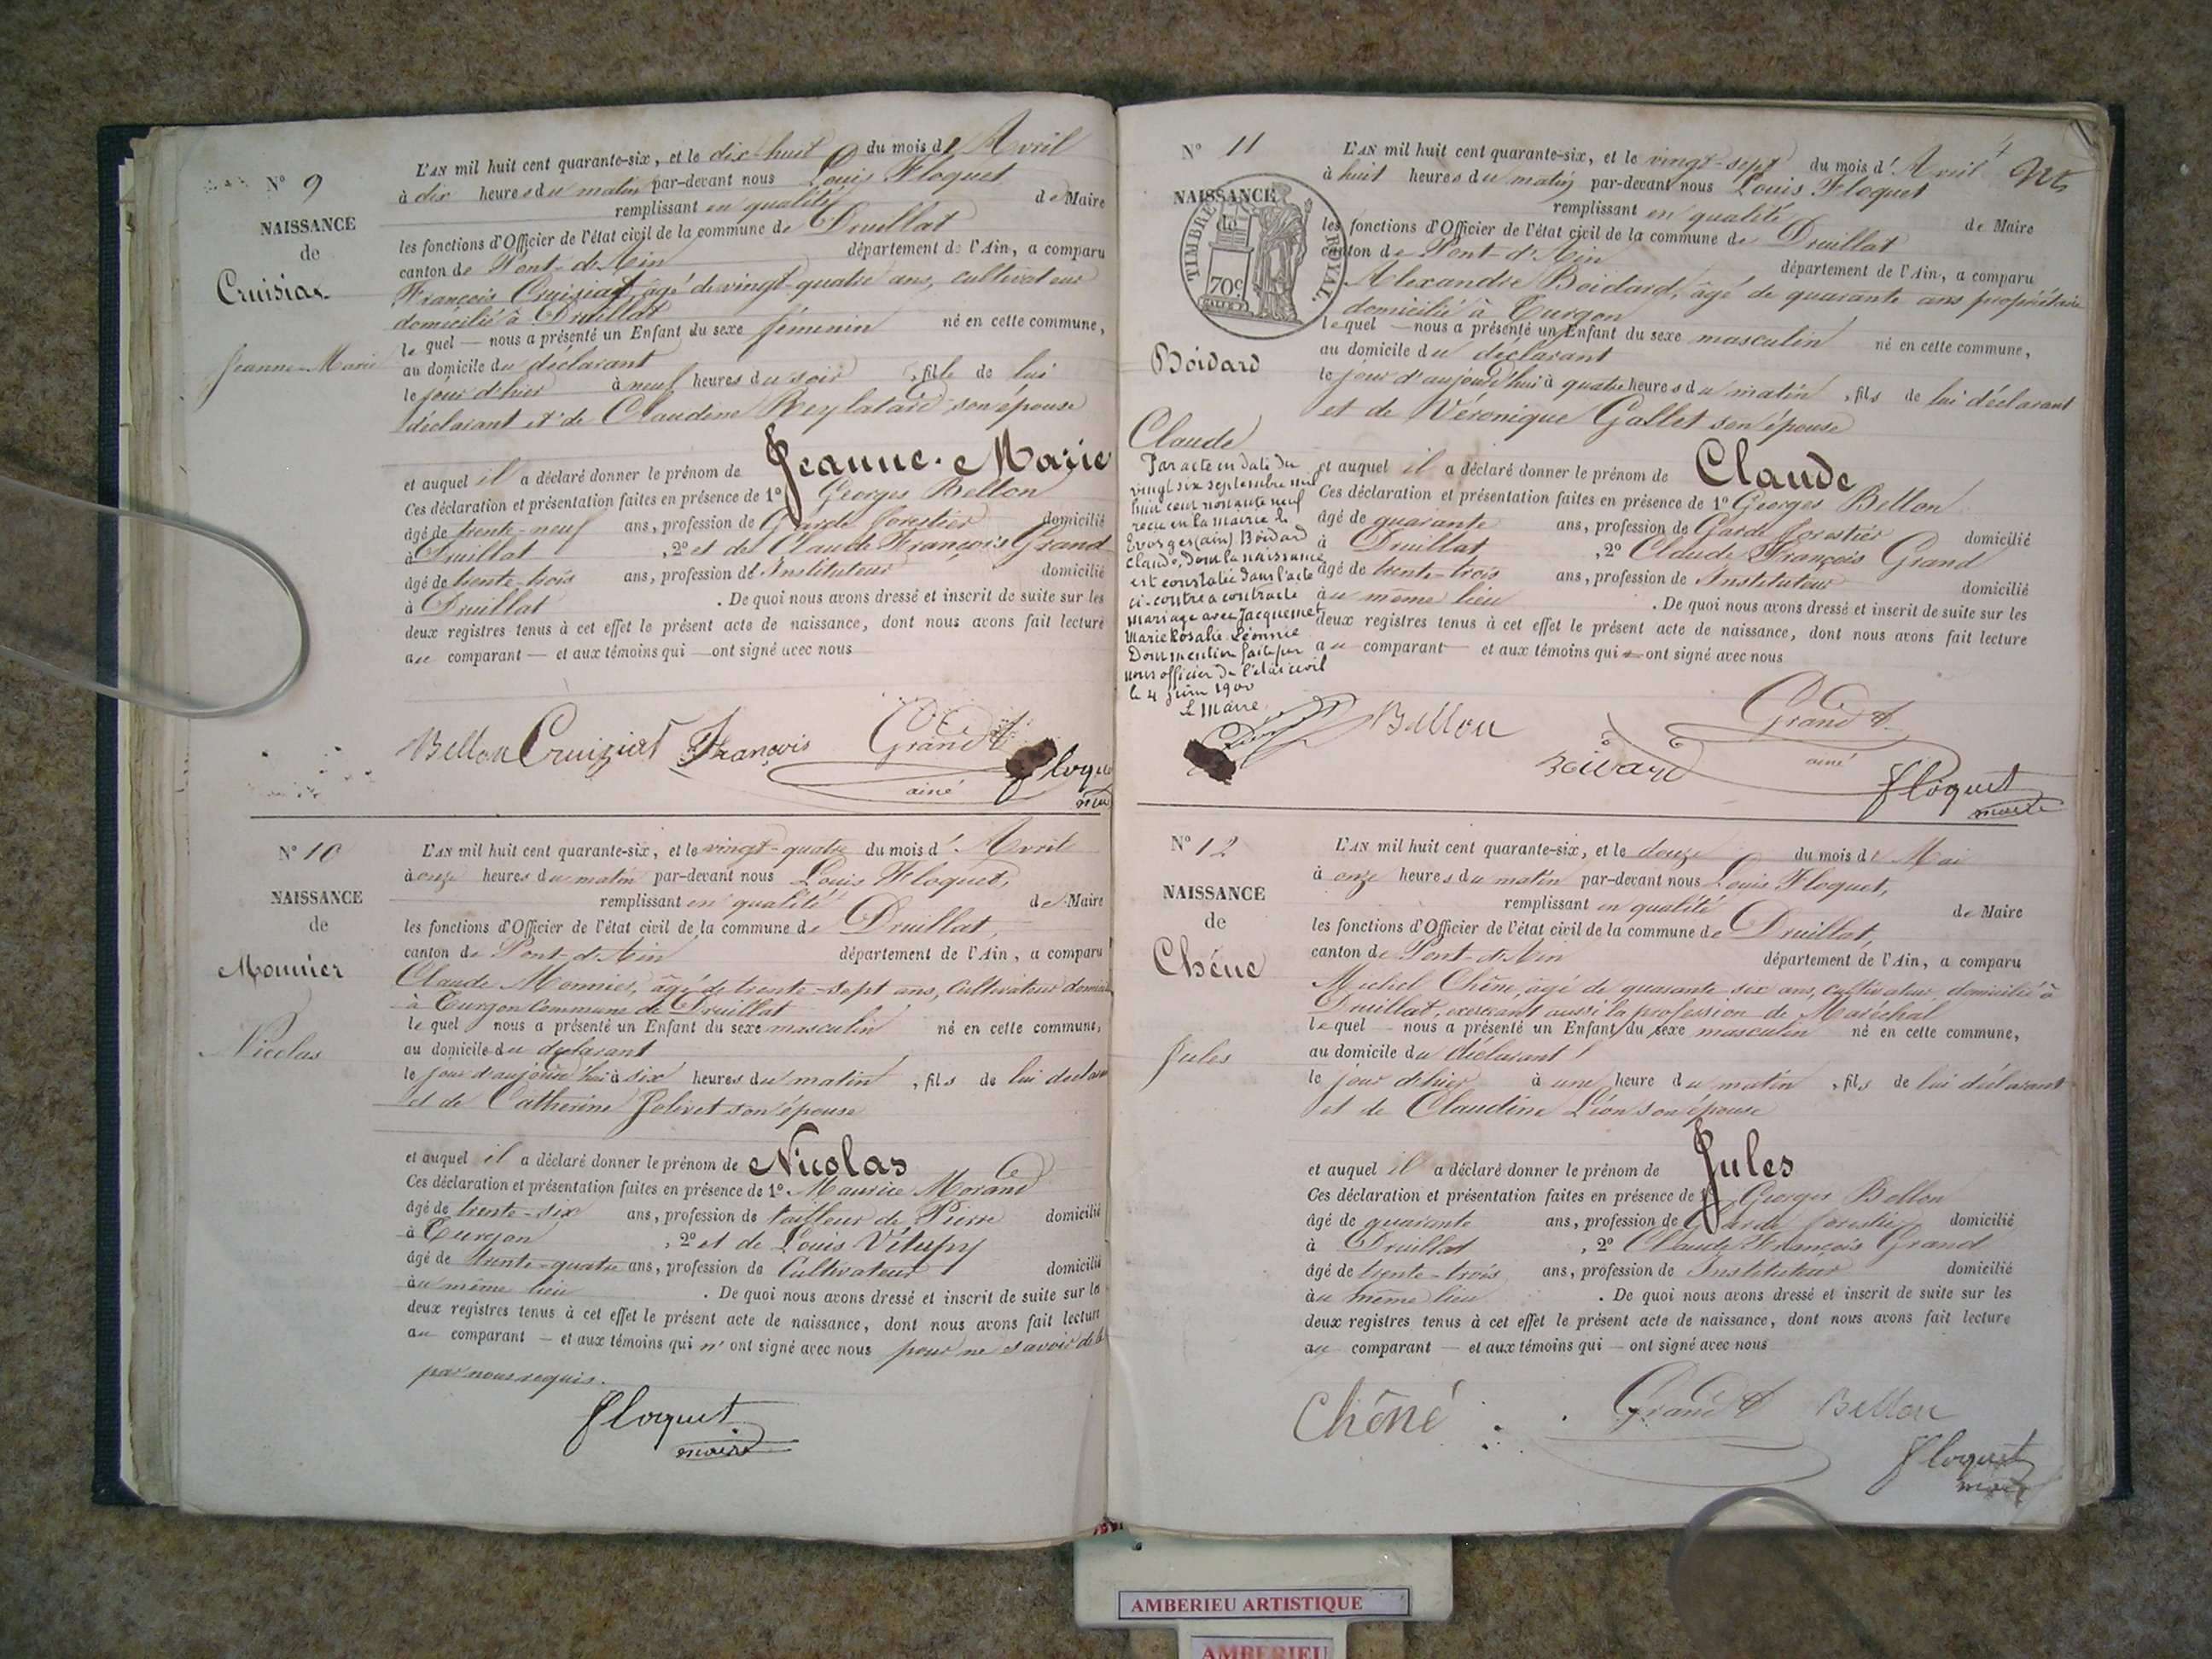 N° 9
NAISSANCE
de
Cruisiat
Jeanne-Marie
L'AN mil huit cent quarante-six, et le dix-huit du mois d'Avril
à dix heures du matin par-devant nous Louis Floquet
remplissant en qualité de Maire
les fonctions d'Officier de l'état civil de la commune de Druillat
canton de Pont-d'Ain département de l'Ain, a comparu
François Cruisiat, âgé de vingt-quatre ans, cultivateur
domicilié à Druillat
lequel — nous a présenté un Enfant du sexe féminin né en cette commune,
au domicile du déclarant
le jour d'hier à neuf heures du soir, fille de lui
déclarant et de Claudine son épouse
et auquel il a déclaré donner le prénom de Jeanne-Marie
Ces déclaration et présentation faites en présence de 1° Georges Bellon
âgé de trente-neuf ans, profession de Garde forestier domicilié
à Druillat, 2° et de Claude François Grand
âgé de trente-trois ans, profession d'Instituteur domicilié
à Druillat. De quoi nous avons dressé et inscrit de suite sur les
deux registres tenus à cet effet le présent acte de naissance, dont nous avons fait lecture
au comparant — et aux témoins qui — ont signé avec nous
Bellon Cruiziat François Grand
ainé
N° 10
NAISSANCE
de
Monnier
Nicolas
L'AN mil huit cent quarante-six, et le vingt-quatre du mois d'Avril
à onze heures du matin par-devant nous Louis Floquet,
remplissant en qualité de Maire
les fonctions d'Officier de l'état civil de la commune de Druillat,
canton de Pont-d'Ain département de l'Ain, a comparu
Claude Monnier, âgé de trente-sept ans, Cultivateur
à Turgon Commune de Druillat
lequel nous a présenté un Enfant du sexe masculin né en cette commune,
au domicile du déclarant
le jour d'aujourd'hui à six heures du matin, fils de lui
et de Catherine Jolivet son épouse
et auquel il a déclaré donner le prénom de Nicolas
Ces déclaration et présentation faites en présence de 1° Maurice Morand
âgé de trente-six ans, profession de tailleur de Pierre domicilié
à Turgon, 2° et de Louis
âgé de trente-quatre ans, profession de Cultivateur domicilié
au même lieu. De quoi nous avons dressé et inscrit de suite sur les
deux registres tenus à cet effet le présent acte de naissance, dont nous avons fait lecture
au comparant — et aux témoins qui n'ont signé avec nous pour ne savoir
par nous requis.
Floquet
maire
4
N° 11
NAISSANCE
de
TIMBRE ROYAL.
70c
Boidard
Claude
Par acte en date du
vingt six septembre mil
huit cent nonante neuf
reçu en la mairie de
Evosges (ain) Boidard
Claude, dont la naissance
est constatée dans l'acte
ci-contre a contracté
mariage avec Jacquemet
Marie Rosalie Léonnie
Dont mention faite par
nous officier de l'état civil
le 4 juin 1900
Le Maire
L'AN mil huit cent quarante-six, et le vingt-sept du mois d'Avril
à huit heures du matin par-devant nous Louis Floquet
remplissant en qualité de Maire
les fonctions d'Officier de l'état civil de la commune de Druillat
canton de Pont-d'Ain département de l'Ain, a comparu
Alexandre Boidard, âgé de quarante ans propriétaire
domicilié à Turgon
lequel — nous a présenté un Enfant du sexe masculin né en cette commune,
au domicile du déclarant
le jour d'aujourd'hui à quatre heures du matin, fils de lui déclarant
et de Véronique Gallet son épouse
et auquel il a déclaré donner le prénom de Claude
Ces déclaration et présentation faites en présence de 1° Georges Bellon
âgé de quarante ans, profession de Garde forestier domicilié
à Druillat, 2° Claude François Grand
âgé de trente-trois ans, profession d'Instituteur domicilié
au même lieu. De quoi nous avons dressé et inscrit de suite sur les
deux registres tenus à cet effet le présent acte de naissance, dont nous avons fait lecture
au comparant — et aux témoins qui — ont signé avec nous
Bellon Grand
Boidard ainé
Floquet
maire
N° 12
NAISSANCE
de
Chêne
Jules
L'AN mil huit cent quarante-six, et le douze du mois de Mai
à onze heures du matin par-devant nous Louis Floquet,
remplissant en qualité de Maire
les fonctions d'Officier de l'état civil de la commune de Druillat,
canton de Pont-d'Ain département de l'Ain, a comparu
Michel Chêne, âgé de quarante six ans, cultivateur, domicilié à
Druillat, exerçant aussi la profession de Maréchal
lequel — nous a présenté un Enfant du sexe masculin né en cette commune,
au domicile du déclarant
le jour d'hier à une heure du matin, fils de lui déclarant
et de Claudine Léon son épouse
et auquel il a déclaré donner le prénom de Jules
Ces déclaration et présentation faites en présence de Georges Bellon
âgé de quarante ans, profession de Garde forestier domicilié
à Druillat, 2° Claude François Grand
âgé de trente-trois ans, profession de Instituteur domicilié
au même lieu. De quoi nous avons dressé et inscrit de suite sur les
deux registres tenus à cet effet le présent acte de naissance, dont nous avons fait lecture
au comparant — et aux témoins qui — ont signé avec nous
Chêne Grand Bellon
Floquet
maire
AMBERIEU ARTISTIQUE
AMBERIEU